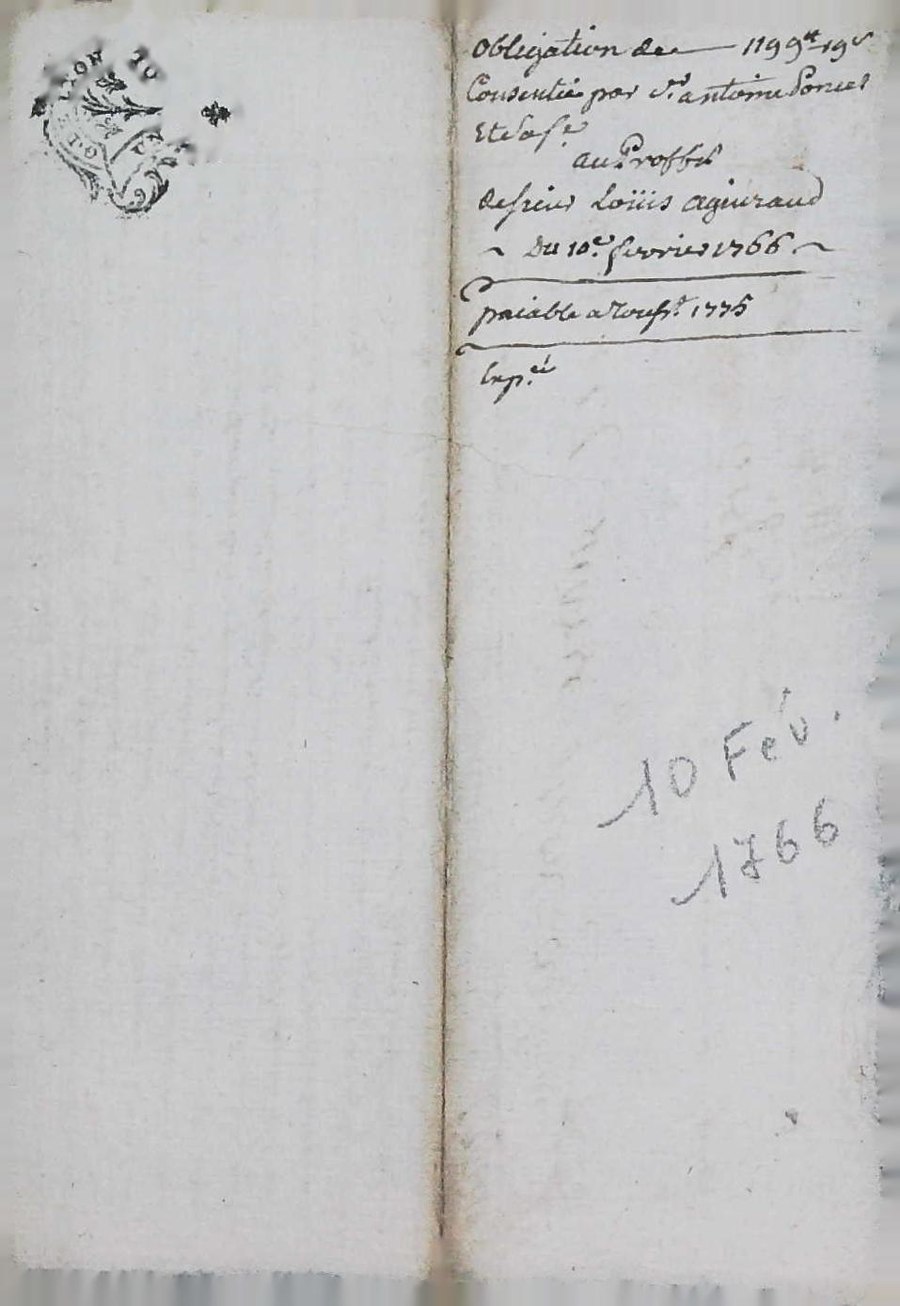 LYON
Obligation de 1199# 19s
Consentie par Sr. antoine Poncet
Et sa fe.
au Proffit
de sieur Loüis agiuraud
Du 10e. fevrier 1766
paiable a Toussts. 1775
Exp.ée
10 Fév.
1766